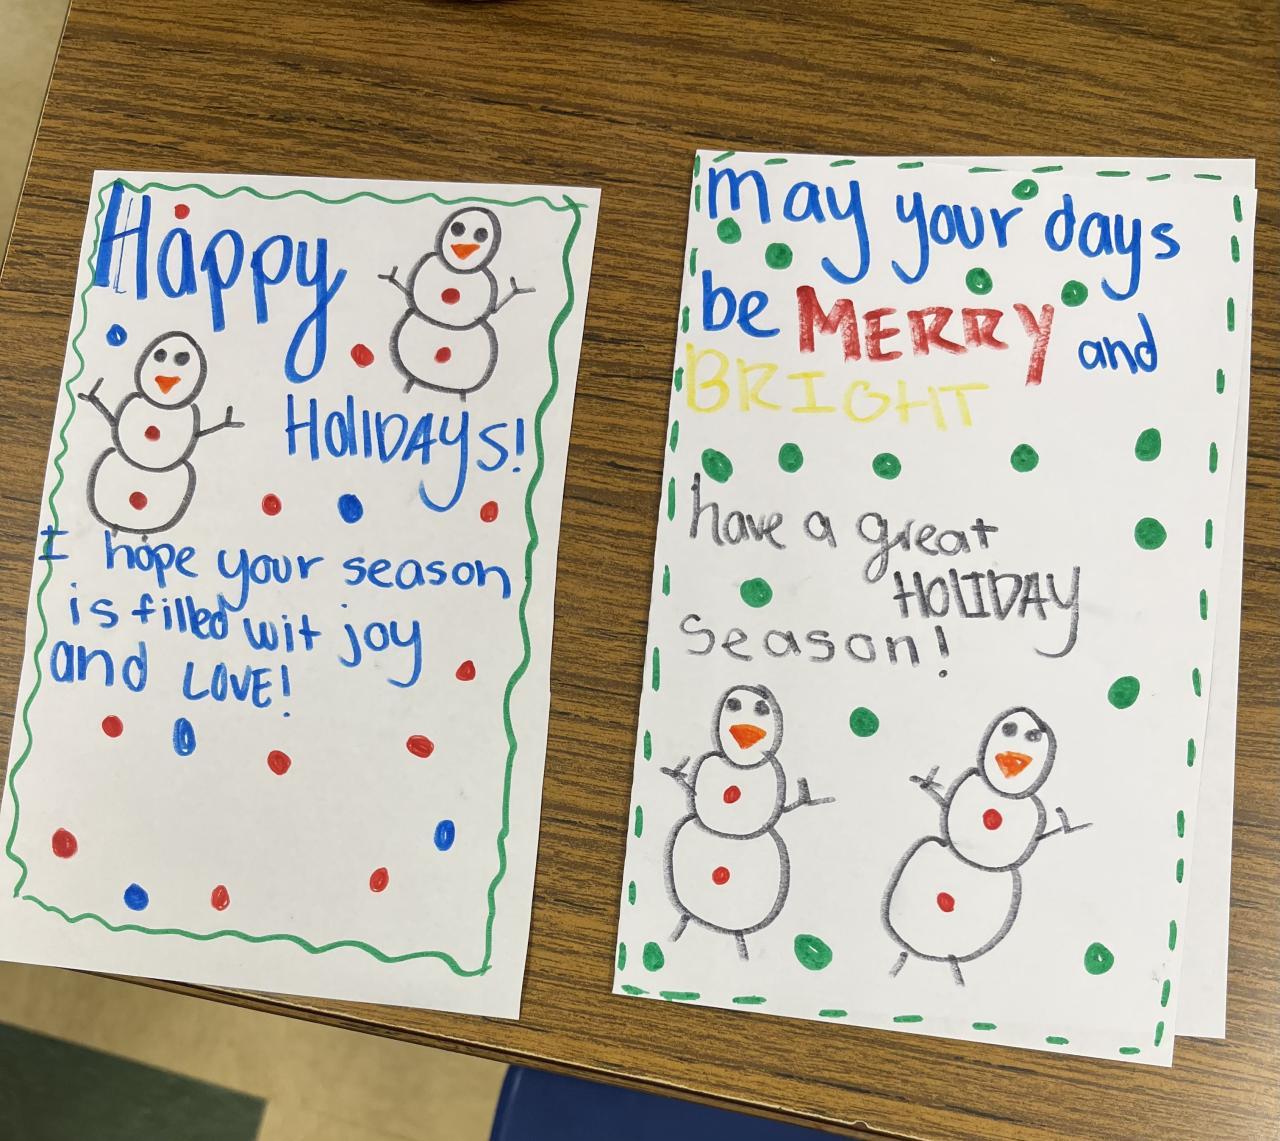 Happy
HOlIDAYS!
I hope your season
is filled wit joy
and LOVE!
may your days
be MERRY and
BRIGHT
have a great
HOLIDAY
season!